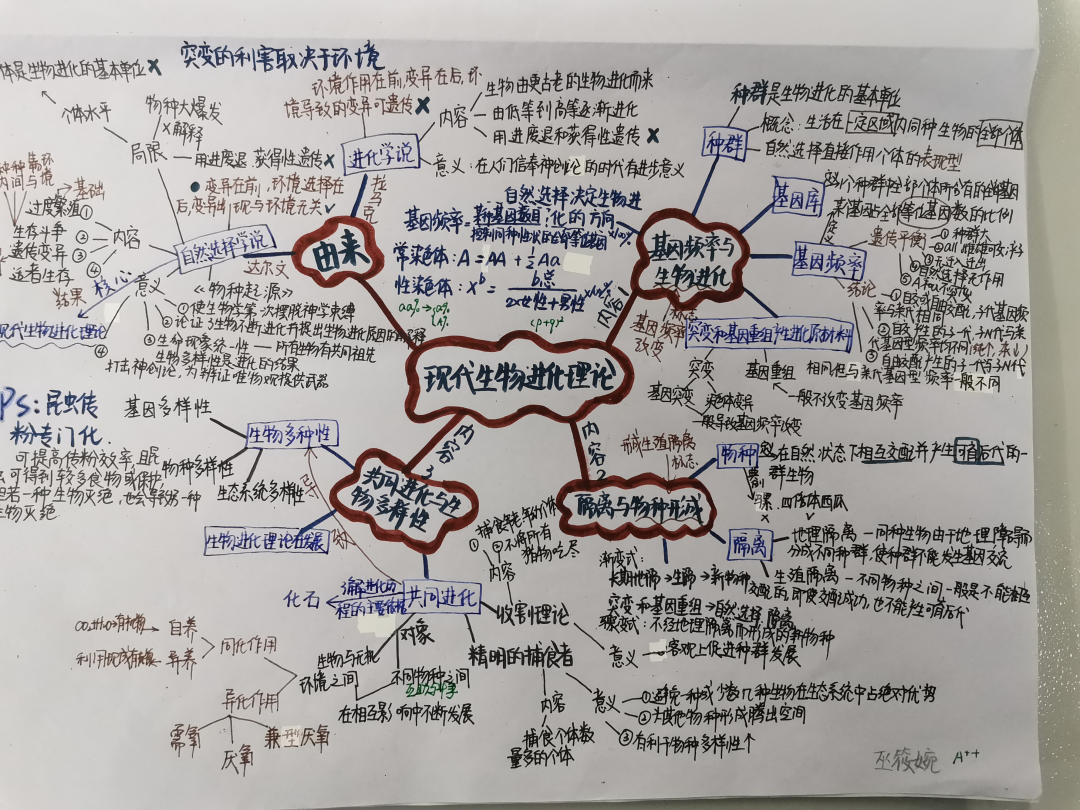 突变的利害取决于环境
体是生物进化的基本单位 ×
个体水平
物种大爆发
×解释
局限
用进废退 获得性遗传 ×
环境作用在前,变异在后,环
境导致的变异可遗传 ×
进化学说
内容
生物由更古老的生物进化而来
由低等到高等逐渐进化
用进废退和获得性遗传 ×
意义:在人们信奉神创论的时代有进步意义
拉马克
变异在前,环境选择在
后,变异出现与环境无关 ✓
由来
自然选择学说
达尔文
内容
过度繁殖①
基础
生存斗争 ②
遗传变异 ③
适者生存 ④
核心
结果
现代生物进化理论
意义
《物种起源》
①使生物学第一次摆脱神学束缚
②论证了生物不断进化并提出生物进化原因的解释
③生命现象统一性——所有生物有共同祖先
④
生物多样性是进化的结果
打击神创论,为辨证唯物观提供武器
自然选择决定生物进
化的方向
基因频率=
常染色体:A=AA+½Aa
性染色体:X^b=
b总
2×女性+男性
×100%
现代生物进化理论
基因频率与
生物进化
内容
种群
种群是生物进化的基本单位
概念:生活在一定区域内同种生物的全部个体
自然选择直接作用个体的表现型
基因库
一个种群全部个体所含有的全部基因
基因频率
某基因占全部等位基因数的比例
定义
遗传平衡
①种群大
③无迁入迁出
④自然选择不作用
结论
基因频率
改变
突变和基因重组产生进化原材料
突变
基因突变
染色体变异
一般导致基因频率改变
基因重组
一般不改变基因频率
PS:昆虫传
粉专门化.
可提高传粉效率,且昆
可得到较多食物或保护
生物灭绝
共同进化与生
物多样性
内容3
生物多种性
基因多样性
物种多样性
生态系统多样性
生物进化理论在发展
共同进化
化石
了解进化历
程的主要依据
对象
生物与无机
环境之间
不同物种之间
互助与斗争
在相互影响中不断发展
同化作用
自养
CO₂+H₂O→有机物
异养
利用现成有机物
异化作用
需氧
厌氧
兼型厌氧
收割理论
内容
①捕食能年幼个体
②不将所有
猎物吃尽
意义
客观上促进种群发展
精明的捕食者
内容
捕食个体数
量多的个体
意义
①避免一种或少数几种生物在生态系统中占绝对优势
②为其他物种形成腾出空间
③有利于物种多样性个
隔离与物种形成
内容2
形成生殖隔离
标志
物种
在自然状态下相互交配并产生可育后代的一
群生物
骡
×
四倍体西瓜
✓
隔离
地理隔离—同种生物由于地理障碍而
分成不同种群,使种群不能发生基因交流
生殖隔离—不同物种之间一般是不能相互
交配的,即使交配成功,也不能产生可育后代
渐变式:
长期地隔→生隔→新物种
突变和基因重组→自然选择→隔离
骤变式:不经地理隔离而形成的新物种
巫筱婉 A++